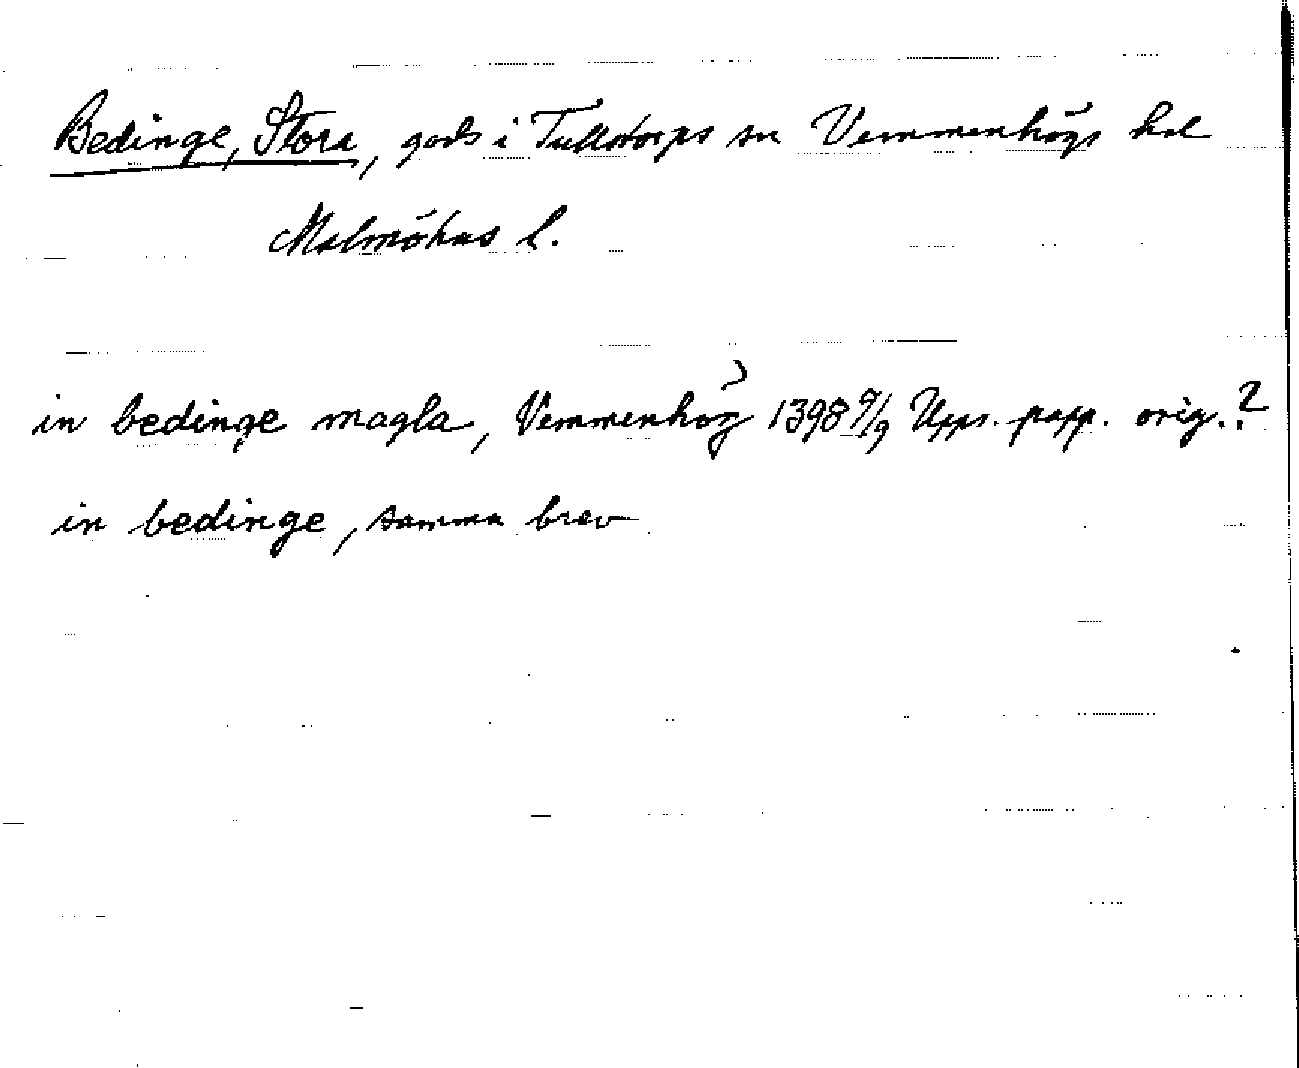 Bedinge, Stora, gods i Tullstorps sn Vemmenhögs hd
Malmöhus l.
in bedinge magla, Vemmenhög 1398 9/9 Upps. papp. orig.?
in bedinge, samma brev